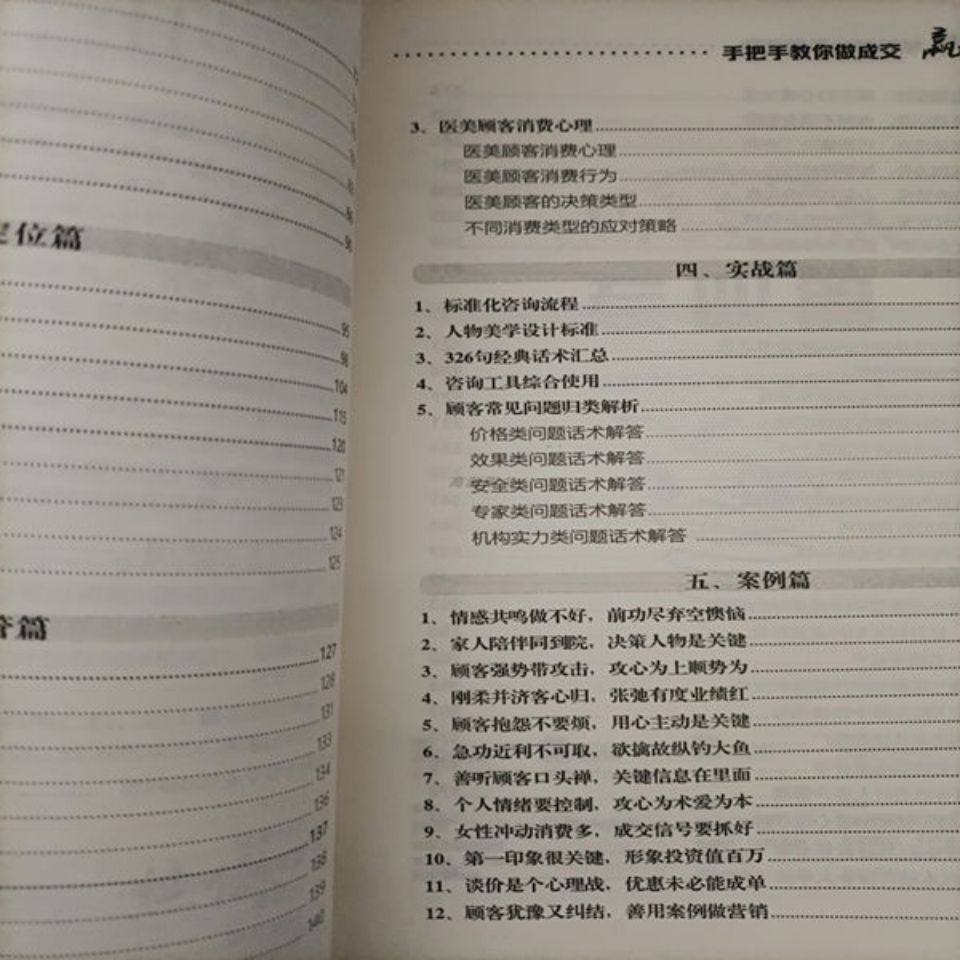 位篇
95
98
104
115
120
121
123
124
125
篇
127
128
131
133
134
136
137
138
139
140
手把手教你做成交 赢
3、医美顾客消费心理
医美顾客消费心理
医美顾客消费行为
医美顾客的决策类型
不同消费类型的应对策略
四、实战篇
1、标准化咨询流程
2、人物美学设计标准
3、326句经典话术汇总
4、咨询工具综合使用
5、顾客常见问题归类解析
价格类问题话术解答
效果类问题话术解答
安全类问题话术解答
专家类问题话术解答
机构实力类问题话术解答
五、案例篇
1、情感共鸣做不好，前功尽弃空懊恼
2、家人陪伴同到院，决策人物是关键
3、顾客强势带攻击，攻心为上顺势为
4、刚柔并济客心归，张弛有度业绩红
5、顾客抱怨不要烦，用心主动是关键
6、急功近利不可取，欲擒故纵钓大鱼
7、善听顾客口头禅，关键信息在里面
8、个人情绪要控制，攻心为术爱为本
9、女性冲动消费多，成交信号要抓好
10、第一印象很关键，形象投资值百万
11、谈价是个心理战，优惠未必能成单
12、顾客犹豫又纠结，善用案例做营销